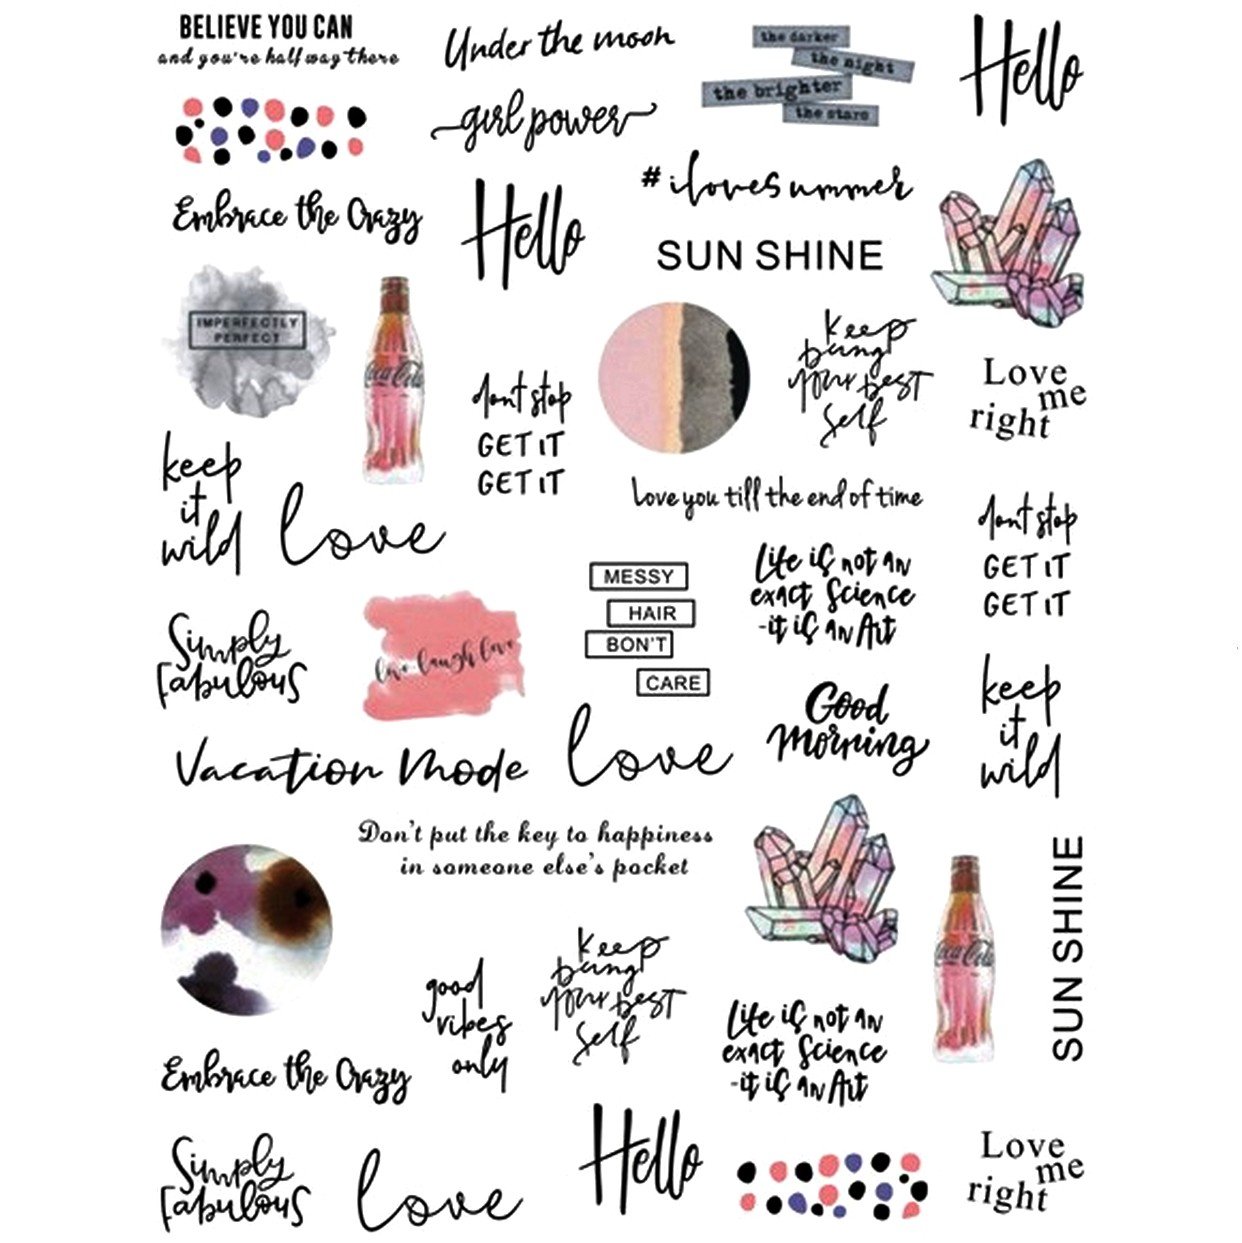 BELIEVE YOU CAN
and you're half way there
Under the moon
girl power
the darker
the night
the brighter
the stars
Hello
Embrace the Crazy
Hello
# ilovesummer
SUN SHINE
IMPERFECTLY
PERFECT
Coca-Cola
dont stop
GET IT
GET IT
keep
being
your best
self
Love
me
right
keep
it
wild
love
love you till the end of time
dont stop
GET IT
GET IT
Simply
fabulous
live laugh love
MESSY
HAIR
BON'T
CARE
Life is not an
exact Science
-it is an Art
Good
Morning
keep
it
wild
Vacation Mode
love
Don't put the key to happiness
in someone else's pocket
Coca-Cola
SUN SHINE
good
vibes
only
keep
being
your best
self
Life is not an
exact Science
-it is an Art
Embrace the Crazy
Simply
fabulous
love
Hello
Love
me
right